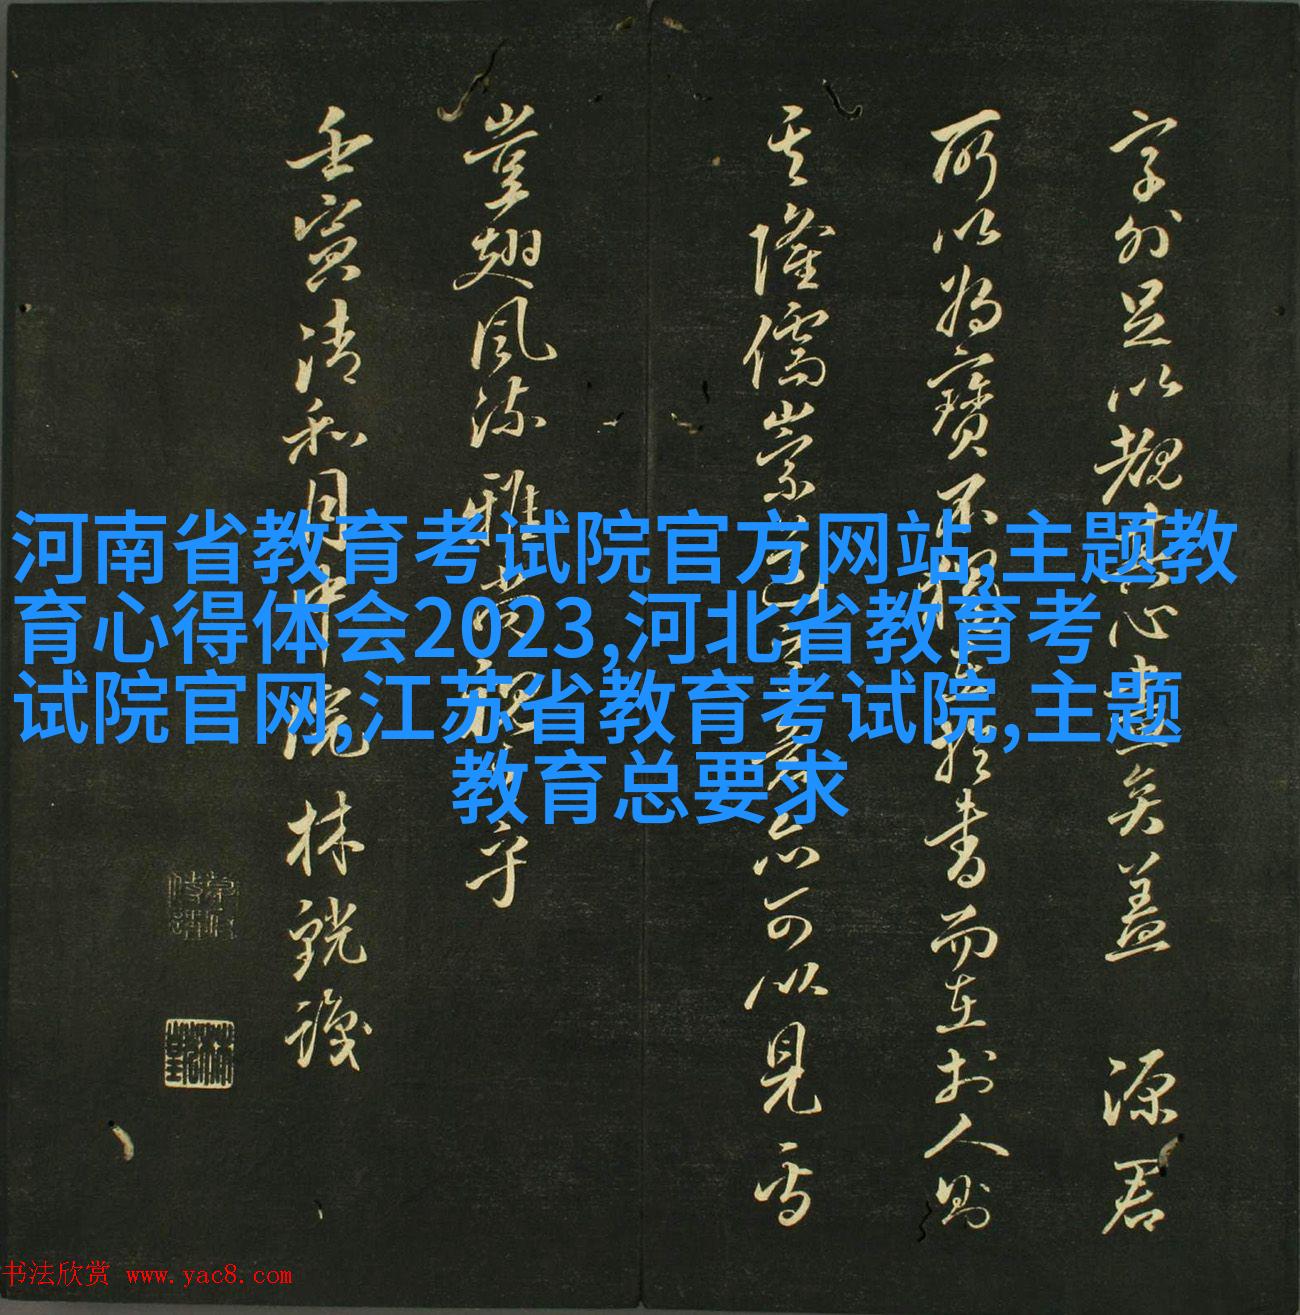 河南省教育考试院官方网站,主题教
育心得体会2023,河北省教育考
试院官网,江苏省教育考试院,主题
教育总要求
字外足以觀其心畫矣蓋 源君
所以為寶不獨在於書而在於人則
其隆儒崇亦可以見焉
豈翅風流雅尚乎
壬寅清和月中浣 林銑識
书法欣赏 www.yac8.com